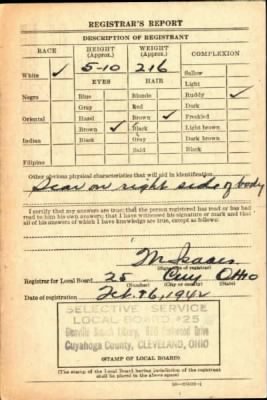 REGISTRAR'S REPORT
DESCRIPTION OF REGISTRANT
RACE HEIGHT (Approx.) WEIGHT (Approx.) COMPLEXION
White ✓ 5-10 216 Sallow
EYES HAIR Light
Negro Blue Blonde Ruddy ✓
Gray Red Dark
Oriental Hazel Brown ✓ Freckled
Brown ✓ Black Light brown
Indian Black Gray Dark brown
Bald Black
Filipino
Other obvious physical characteristics that will aid in identification
Scar on right side of body
I certify that my answers are true; that the person registered has read or has had
read to him his own answers; that I have witnessed his signature or mark and that
all of his answers of which I have knowledge are true, except as follows:
M. Isaacs
(Signature of registrar)
Registrar for Local Board 25 Cuy Ohio
(Number) (City or county) (State)
Date of registration Feb. 16, 1942
SELECTIVE SERVICE
LOCAL BOARD #25
Glenville Branch Library, 660 Parkwood Drive
Cuyahoga County, CLEVELAND, OHIO
(STAMP OF LOCAL BOARD)
(The stamp of the Local Board having jurisdiction of the registrant
shall be placed in the above space)